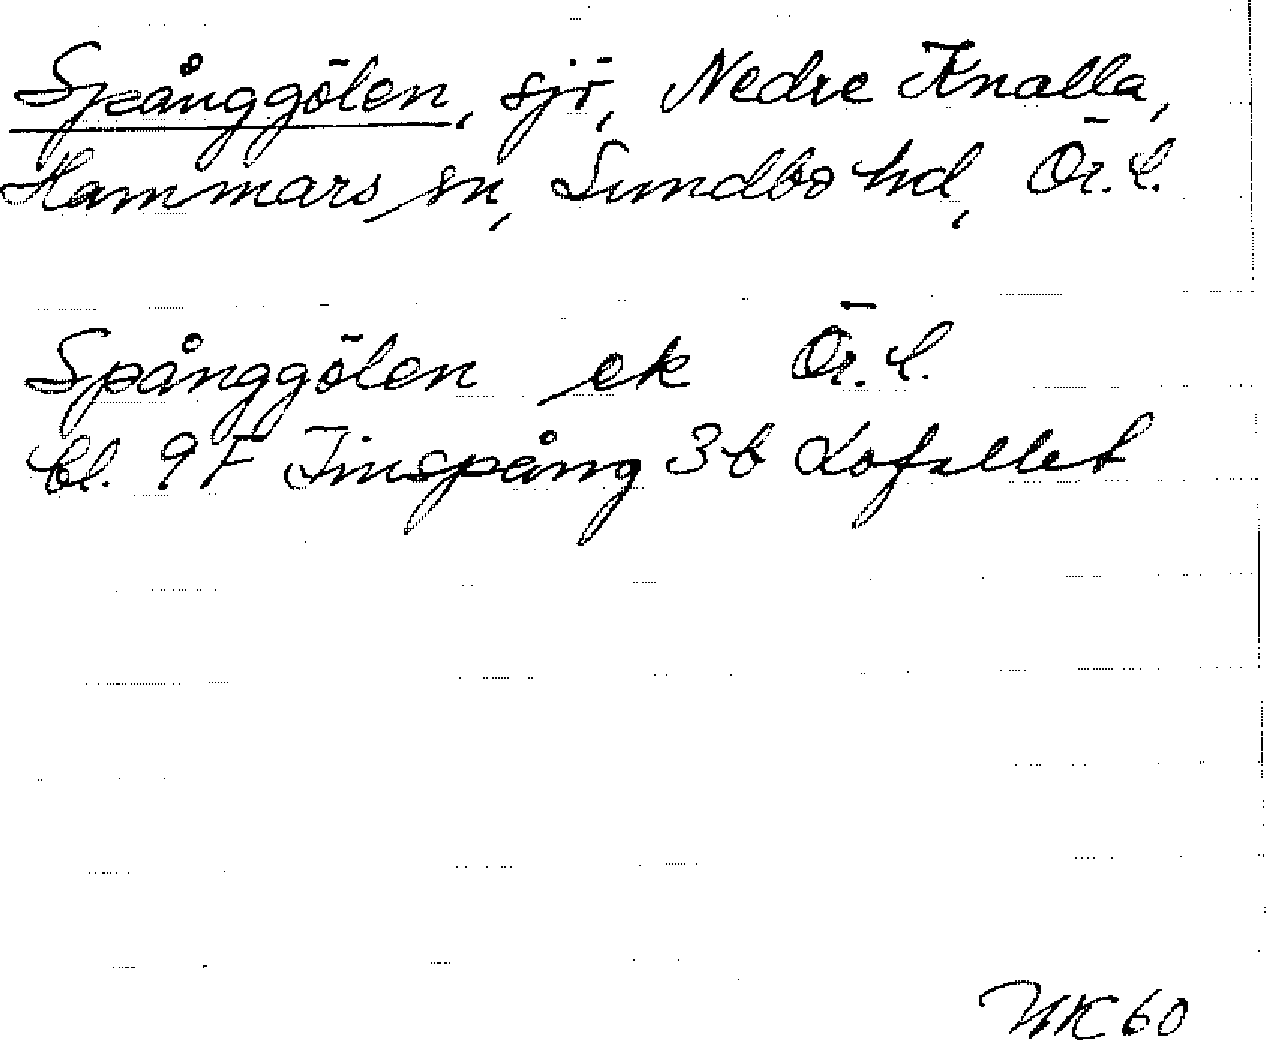 Spånggölen, sjö, Nedre Knalla,
Hammars sn, Sundbo hd, Ör. l.
Spånggölen ek Ör. l.
bl. 9F Finspång 3b Lofallet
NK 60